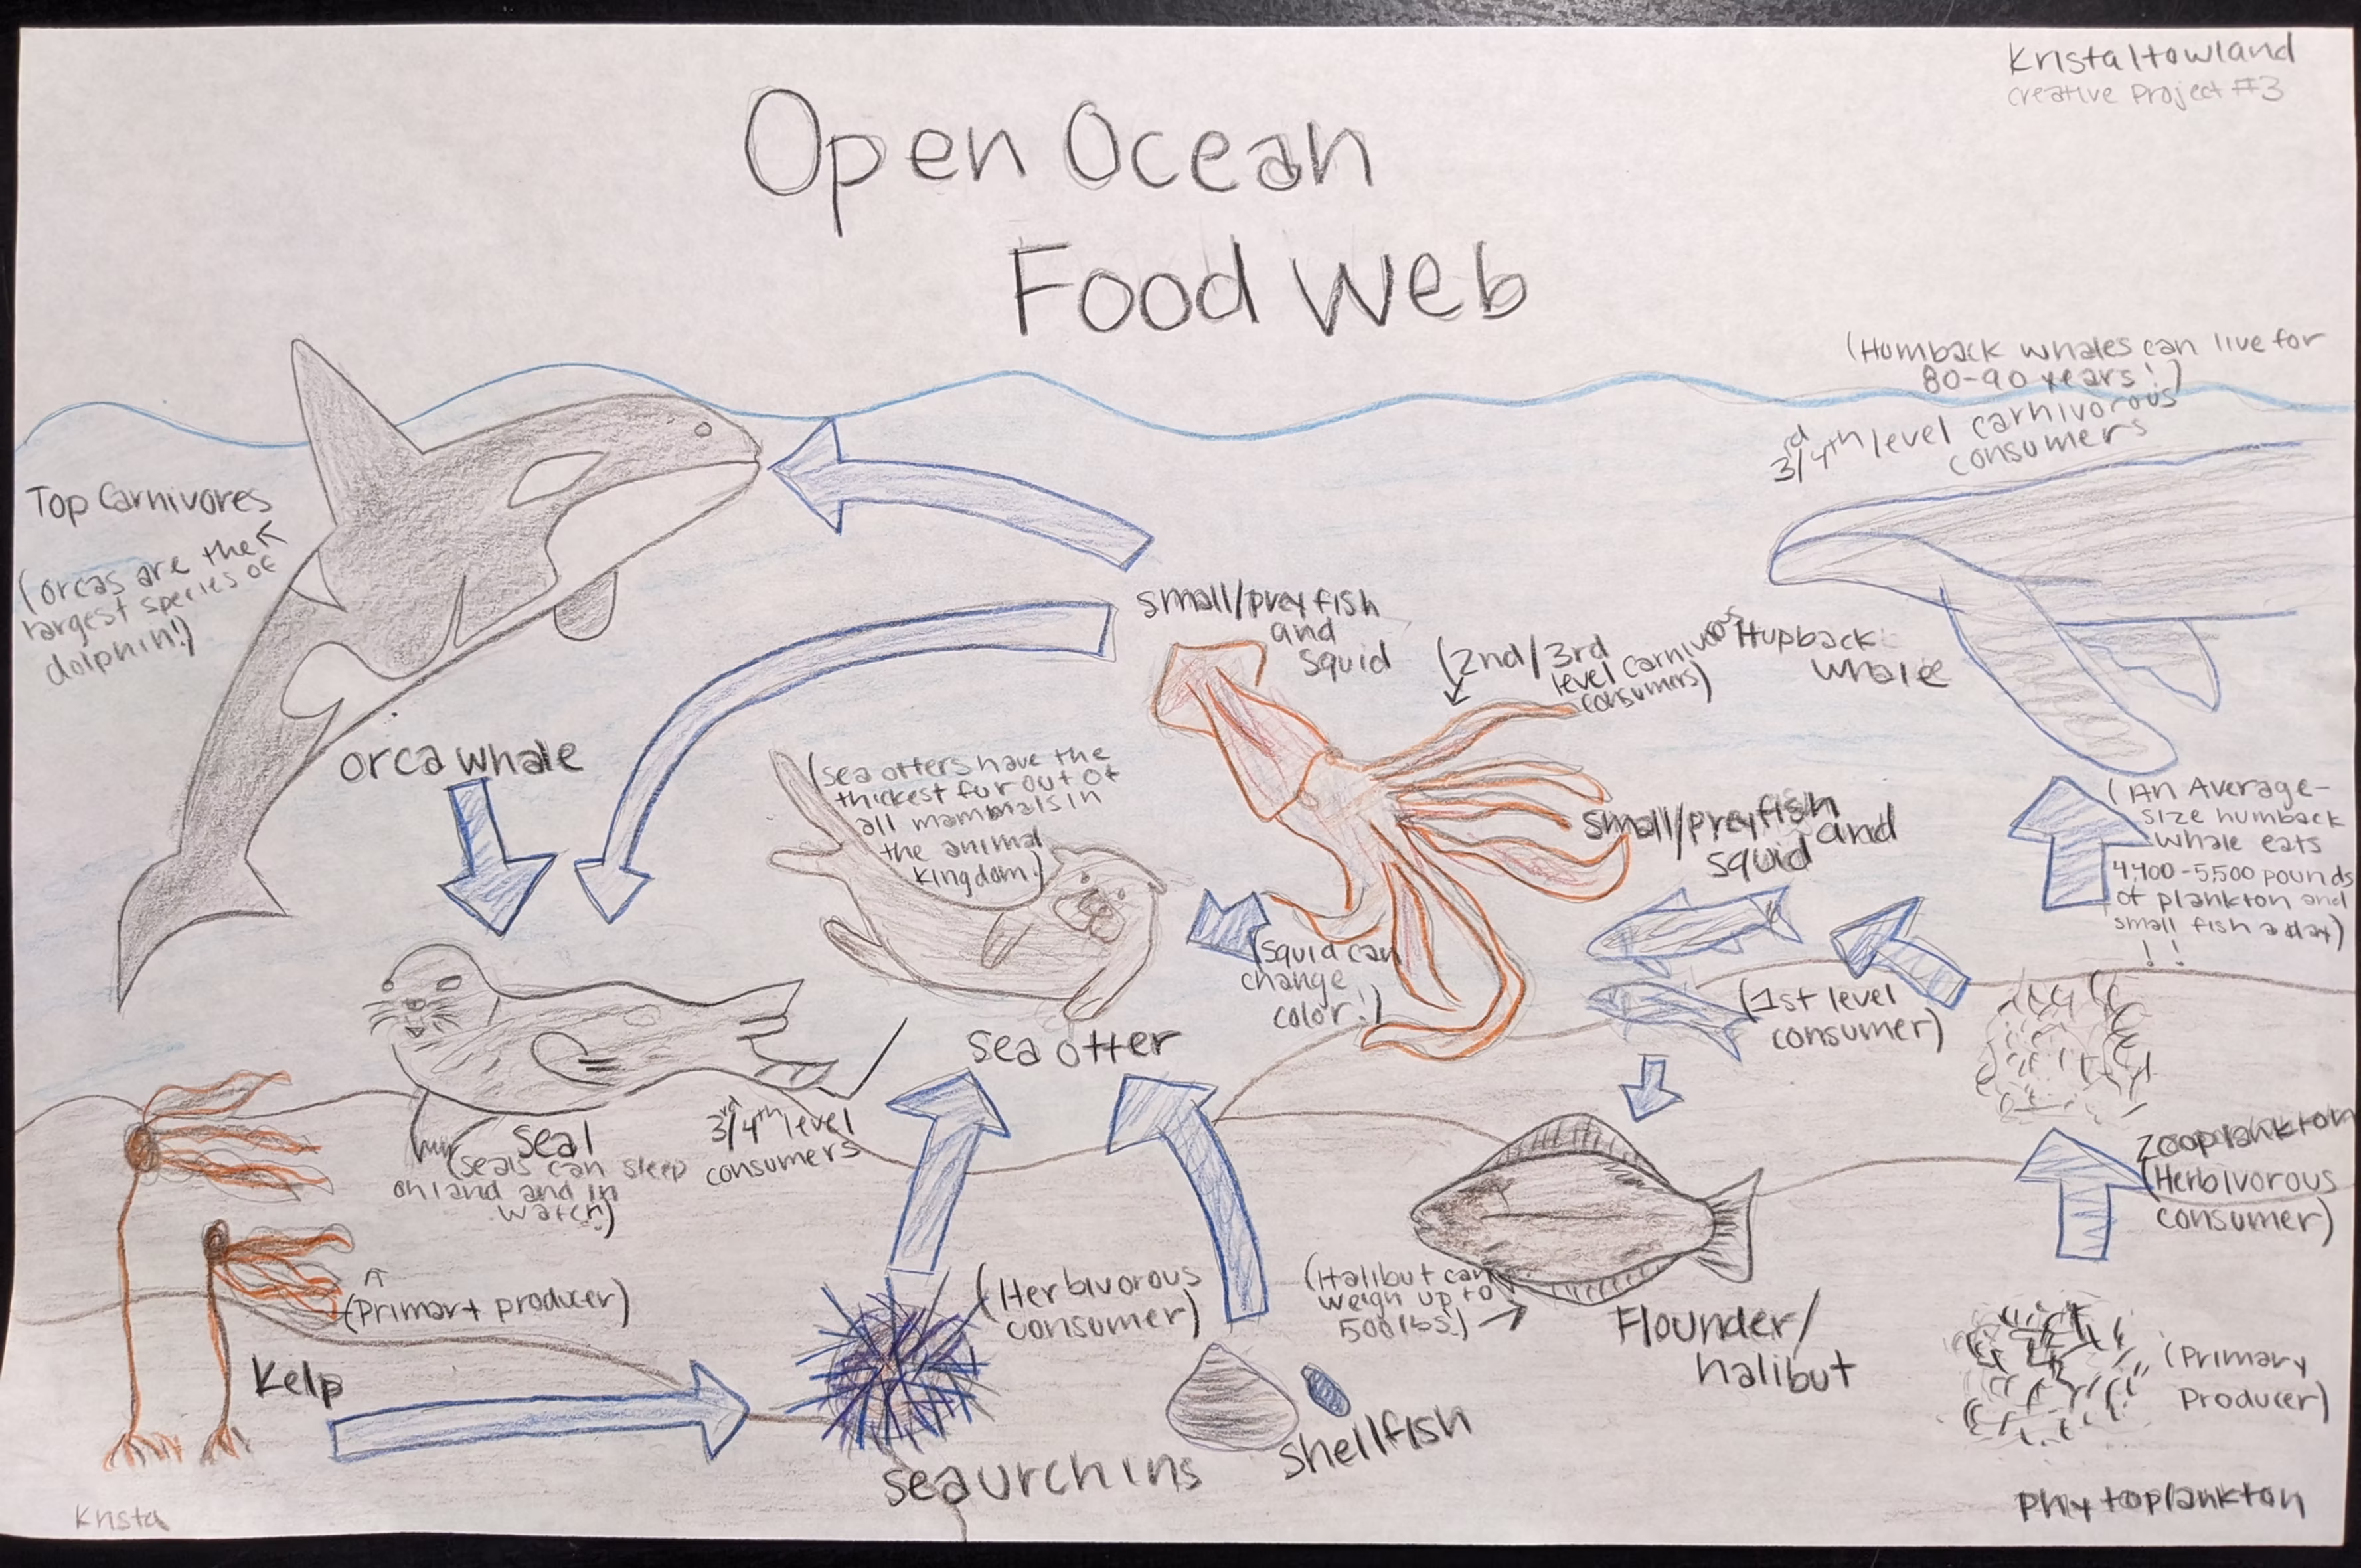 Krista Howland
Creative Project #3
Open Ocean
Food Web
(Humback whales can live for
80-90 years!)
3rd/4th level carnivorous
consumers
Top Carnivores
(orcas are the
largest species of
dolphin!)
small/prey fish
and
squid
(2nd/3rd
level carnivorous
consumers)
Hupback
whale
orca whale
(sea otters have the
thickest fur out of
all mammals in
the animal
kingdom!)
small/prey fish
and
squid
(An Average-
size humback
whale eats
4,400-5,500 pounds
of plankton and
small fish a day)
!!
(squid can
change
color!)
(1st level
consumer)
sea otter
seal
(seals can sleep
on land and in
water!)
3rd/4th level
consumers
Zooplankton
(Herbivorous
consumer)
(Primary producer)
Kelp
(Herbivorous
consumer)
(Halibut can
weigh up to
500 lbs.)
Flounder/
halibut
(Primary
Producer)
sea urchins
shellfish
Phytoplankton
Krista